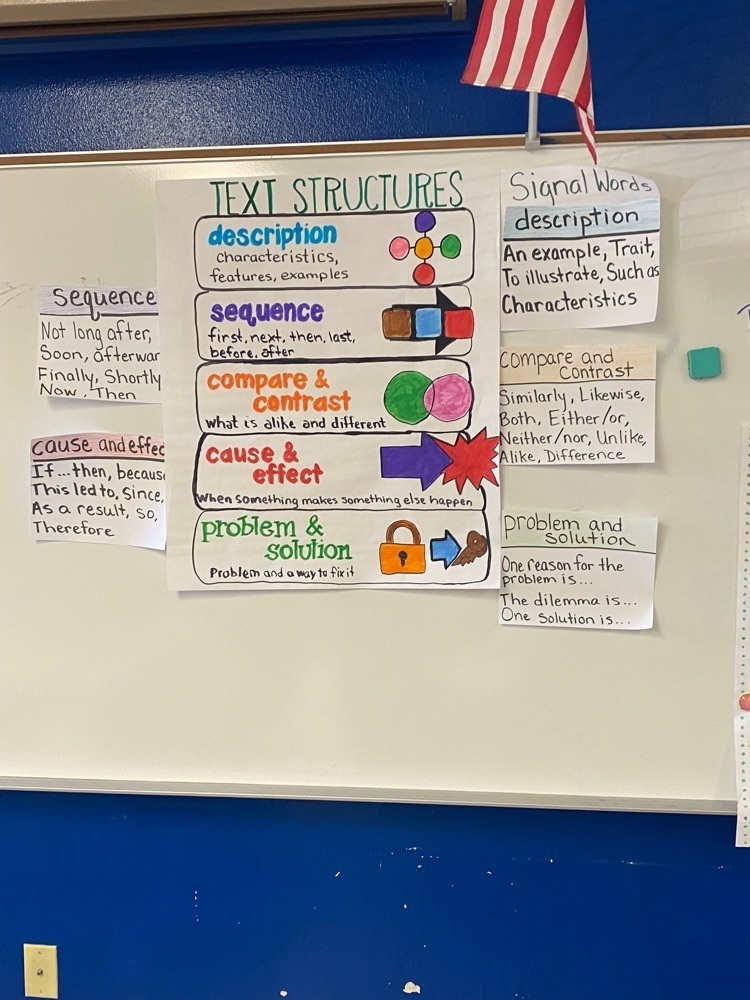 TEXT STRUCTURES
description
characteristics,
features, examples
sequence
first, next, then, last,
before, after
compare &
contrast
What is alike and different
cause &
effect
When something makes something else happen
problem &
solution
Problem and a way to fix it
Sequence
Not long after,
Soon, afterwar
Finally, Shortly
Now, Then
cause and effec
If...then, becaus
This led to, Since,
As a result, so,
Therefore
Signal Words
description
An example, Trait,
To illustrate, Such as
Characteristics
Compare and
Contrast
Similarly, Likewise,
Both, Either/or,
Neither/nor, Unlike,
Alike, Difference
problem and
solution
One reason for the
problem is...
The dilemma is...
One solution is...